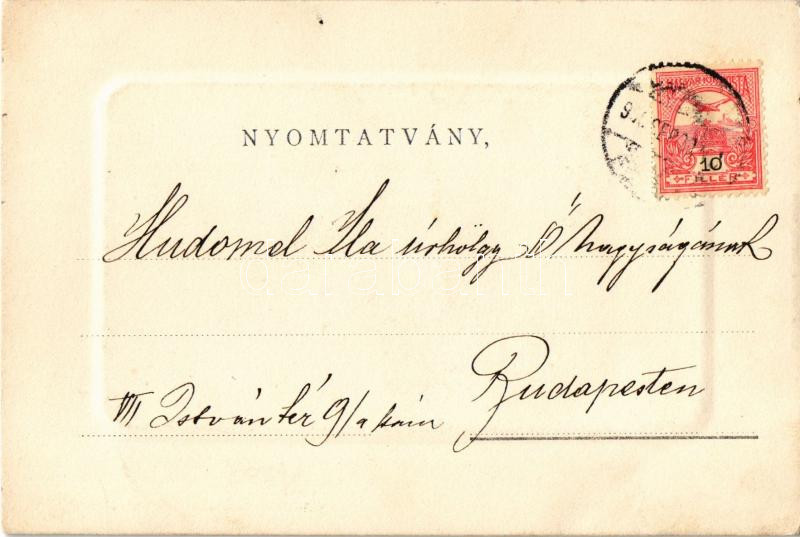 NYOMTATVÁNY,
MAGYAR KIR. POSTA
10
FILLÉR
Hudomel Ila úrhölgy Ő Nagyságának
Budapesten
VII István tér 9/a szám